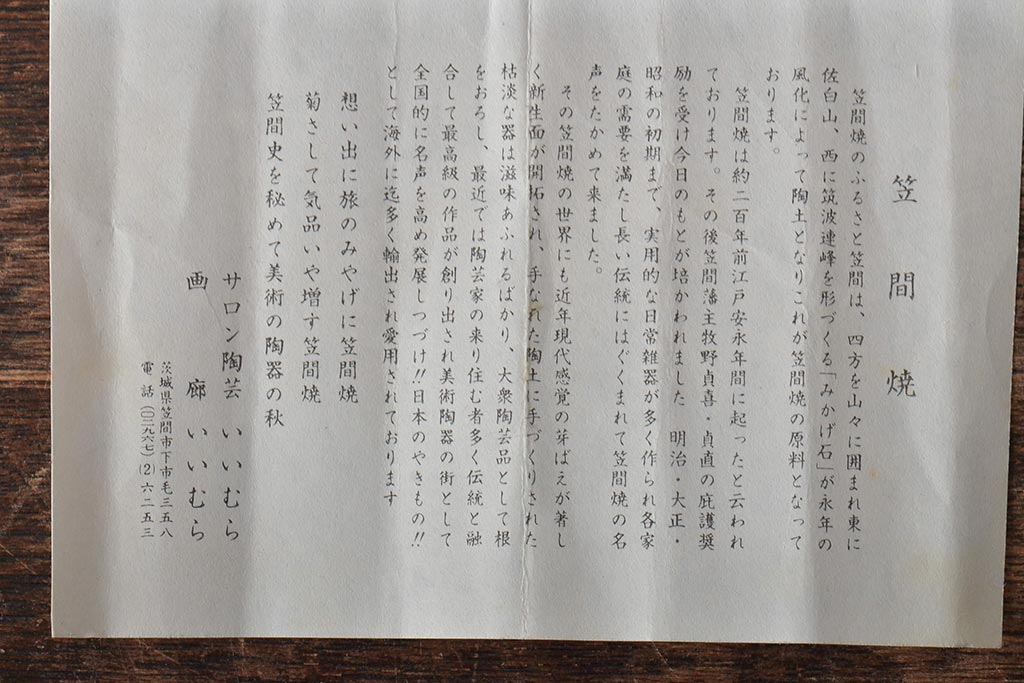 笠間焼
笠間焼のふるさと笠間は、四方を山々に囲まれ東に
佐白山、西に筑波連峰を形づくる「みかげ石」が永年の
風化によって陶土となりこれが笠間焼の原料となって
おります。
笠間焼は約二百年前江戸安永年間に起ったと云われ
ております。その後笠間藩主牧野貞喜・貞直の庇護奨
励を受け今日のもとが培かわれました 明治・大正・
昭和の初期まで、実用的な日常雑器が多く作られ各家
庭の需要を満たし長い伝統にはぐくまれて笠間焼の名
声をたかめて来ました。
その笠間焼の世界にも近年現代感覚の芽ばえが著し
く新生面が開拓され、手なれた陶土に手づくりされた
枯淡な器は滋味あふれるばかり、大衆陶芸品として根
をおろし、最近では陶芸家の来り住む者多く伝統と融
合して最高級の作品が創り出され美術陶器の街として
全国的に名声を高め発展しつづけ!!日本のやきもの!!
として海外に迄多く輸出され愛用されております
想い出に旅のみやげに笠間焼
菊さして気品いや増す笠間焼
笠間史を秘めて美術の陶器の秋
サロン陶芸 いいむら
画廊 いいむら
茨城県笠間市下市毛三五八
電話(〇二九六七)(2)六二五三